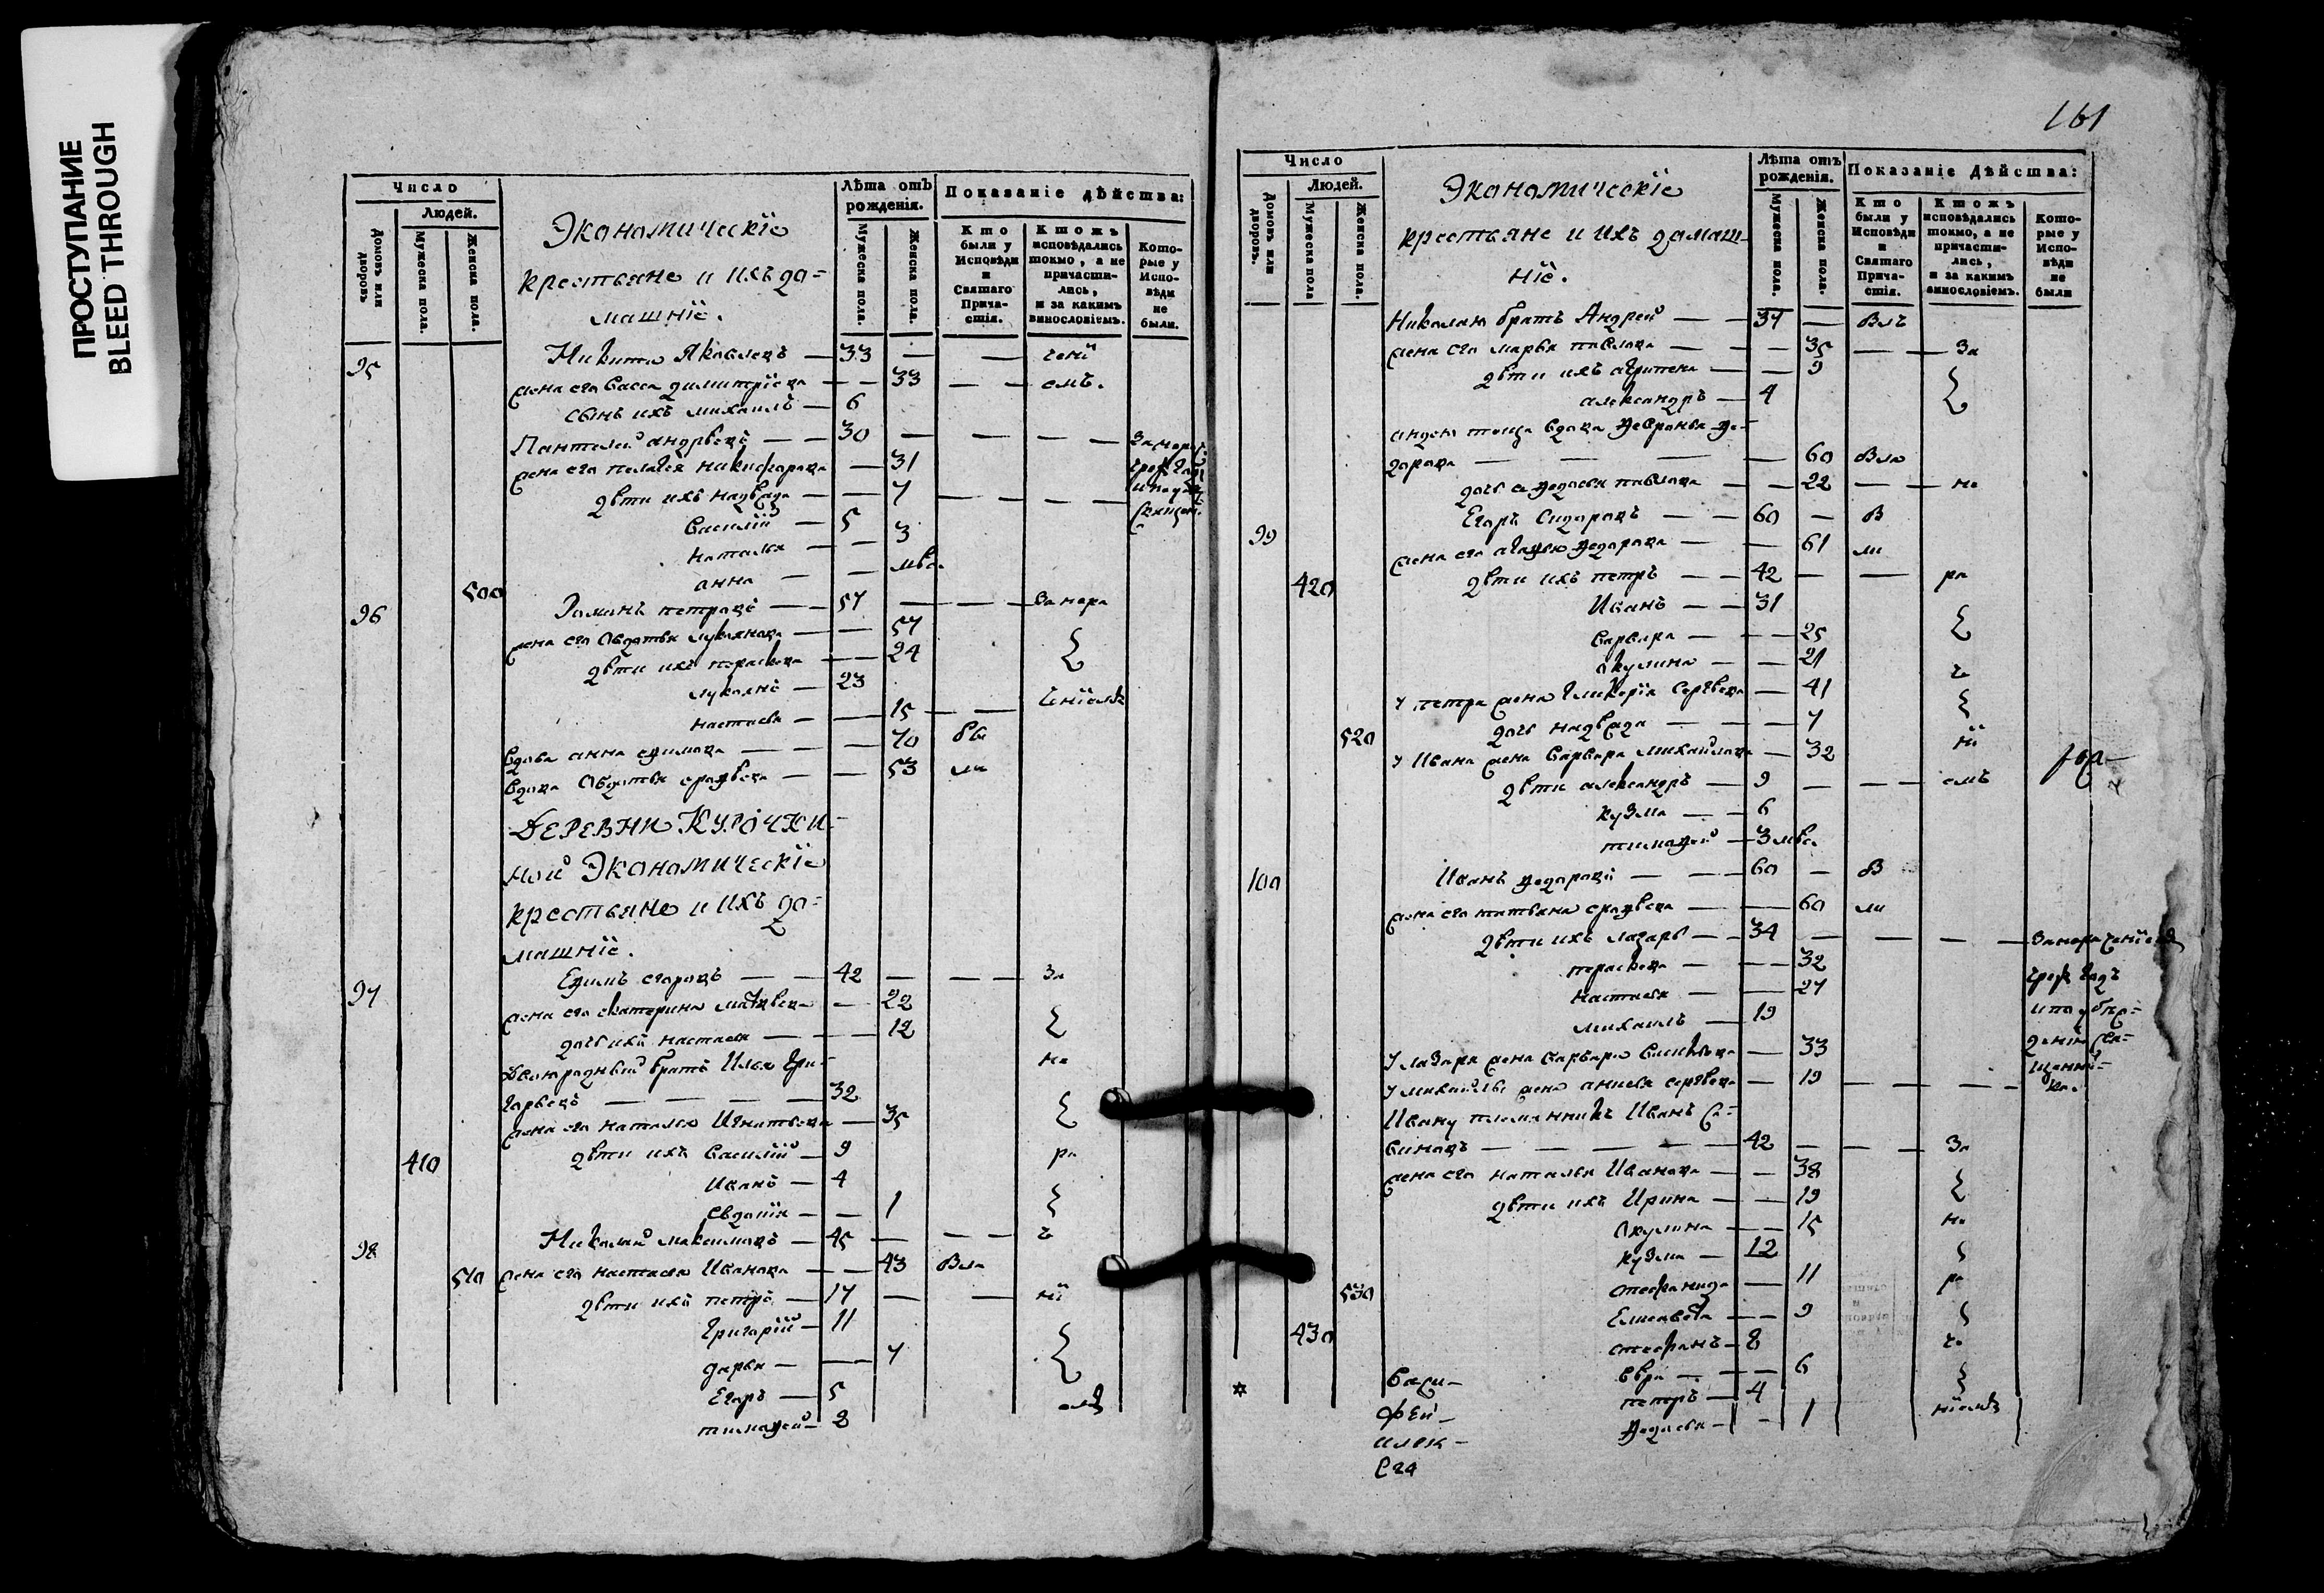 ПРОСТУПАНИЕ
BLEED THROUGH
Число
Людей.
Домовъ или дворовъ.
Мужеска пола.
Женска пола.
Экономическїе
крестьяне и ихъ до=
машнїе.
Лѣта отъ рожденїя.
Мужеска пола.
Женска пола.
Показанїе дѣйства:
Кто были у Исповѣди и Святаго Прича-стїя.
Ктожъ исповѣдались токмо, а не причасти-лись, и за какимъ винословїемъ.
Кото-рые у Испо-вѣди не были.
95 Никита Яковлевъ — 33 — — ченї
жена его Васса Димитрїева — — 33 — — емъ.
сынъ ихъ Михаилъ — 6
Пантелей Андрѣевъ — — 30 — — — —
жена его Пелагея Никифорова — 31
дѣти ихъ Надѣжда — — 7 — — —
Василїй — 5
Наталья — — 3
500 Анна — — мѣс.
96 петровъ — — 57 — — — За нера
жена его Авдотья Лукьянова — — 57
дѣти ихъ Парасковья — — 24
Лукьянъ — 23
Настасья — — 15 — — ченїемъ
вдова Анна Ефимова — — — 70 бы
вдова Авдотья — — 53 ли
Деревни Курочки=
ной Экономическїе
крестьяне и ихъ до=
машнїе.
97 Ефимъ Егоровъ — — 42 — — — За
жена его Екатерина Матвѣева — 22
дочь ихъ Настасья — — — 12
Двоюродный братъ Илья Гри= не
горьевъ — — — — 32
жена его Наталья Игнатьева — 35
410 дѣти ихъ Василїй — 9 ра
Иванъ — 4
Евдокїя — — 1
98 Николай Максимовъ — 45 — — — ч
510 жена его Настасья Иванова — — 43 Была
дѣти ихъ Петръ — 17 — — нї
Григорїй — 11
Дарья — — — 7
Егоръ — 5
Тимофей — 2 емъ
161
Число
Людей.
Домовъ или дворовъ.
Мужеска пола
Женска пола.
Экономическїе
крестьяне и ихъ домаш-
нїе.
Лѣта отъ рожденїя.
Мужеска пола.
Женска пола.
Показанїе Дѣйства:
Кто были у Исповѣди и Святаго Прича-стїя.
Ктожъ исповѣдались токмо, а не причасти-лись, и за какимъ винословїемъ.
Кото-рые у Испо-вѣди не были
Николаю братъ Андрей — — 37 — Былъ
жена его Марья Павлова — — — 35 — — За
дѣти ихъ Агрипена — — 9
Александръ — 4
теща вдова Феврония Фе=
дорова — — — — 60 Была
дочь ея Федосья Павлова — — 22 — — не
99 Егоръ Сидоровъ — — 60 — В
жена его Агафья Федорова — — 61 ли
420 дѣти ихъ Петръ — — 42 — — ра
Иванъ — — 31
Варвара — — — 25
Акулина — — 21 ч
у Петра жена Гликерїя Сергѣева — 41
520 дочь Надѣжда — — — 7
у Ивана жена Варвара Михайлова — 32 нї
дѣти Александръ — 9 — — — емъ
Кузма — — 6
Тимофей — 3 мѣс.
100 Иванъ Федоровъ — — — 60 — В
жена его Татьяна — — 60 ли
дѣти ихъ Лазарь — — 34 — — — — За нераченїемъ
Парасковья — — — 32
Настасья — — 27
Михаилъ — 19
у Лазаря жена Варвара Васильева — 33
у Михайлы жена Анисья Сергѣева — 19 — — — —
Ивану племянникъ Иванъ Са=
виновъ — — — — — 42 — — За
жена его Наталья Иванова — — 38
дѣти ихъ Ирина — — 19
Акулина — — 15 не
Кузма — 12
530 Стефанида — — 11 ра
Елисавета — — 9
430 Стефанъ — 8 че
— — 6
Петръ — 4
Федосья — — 1 нїемъ